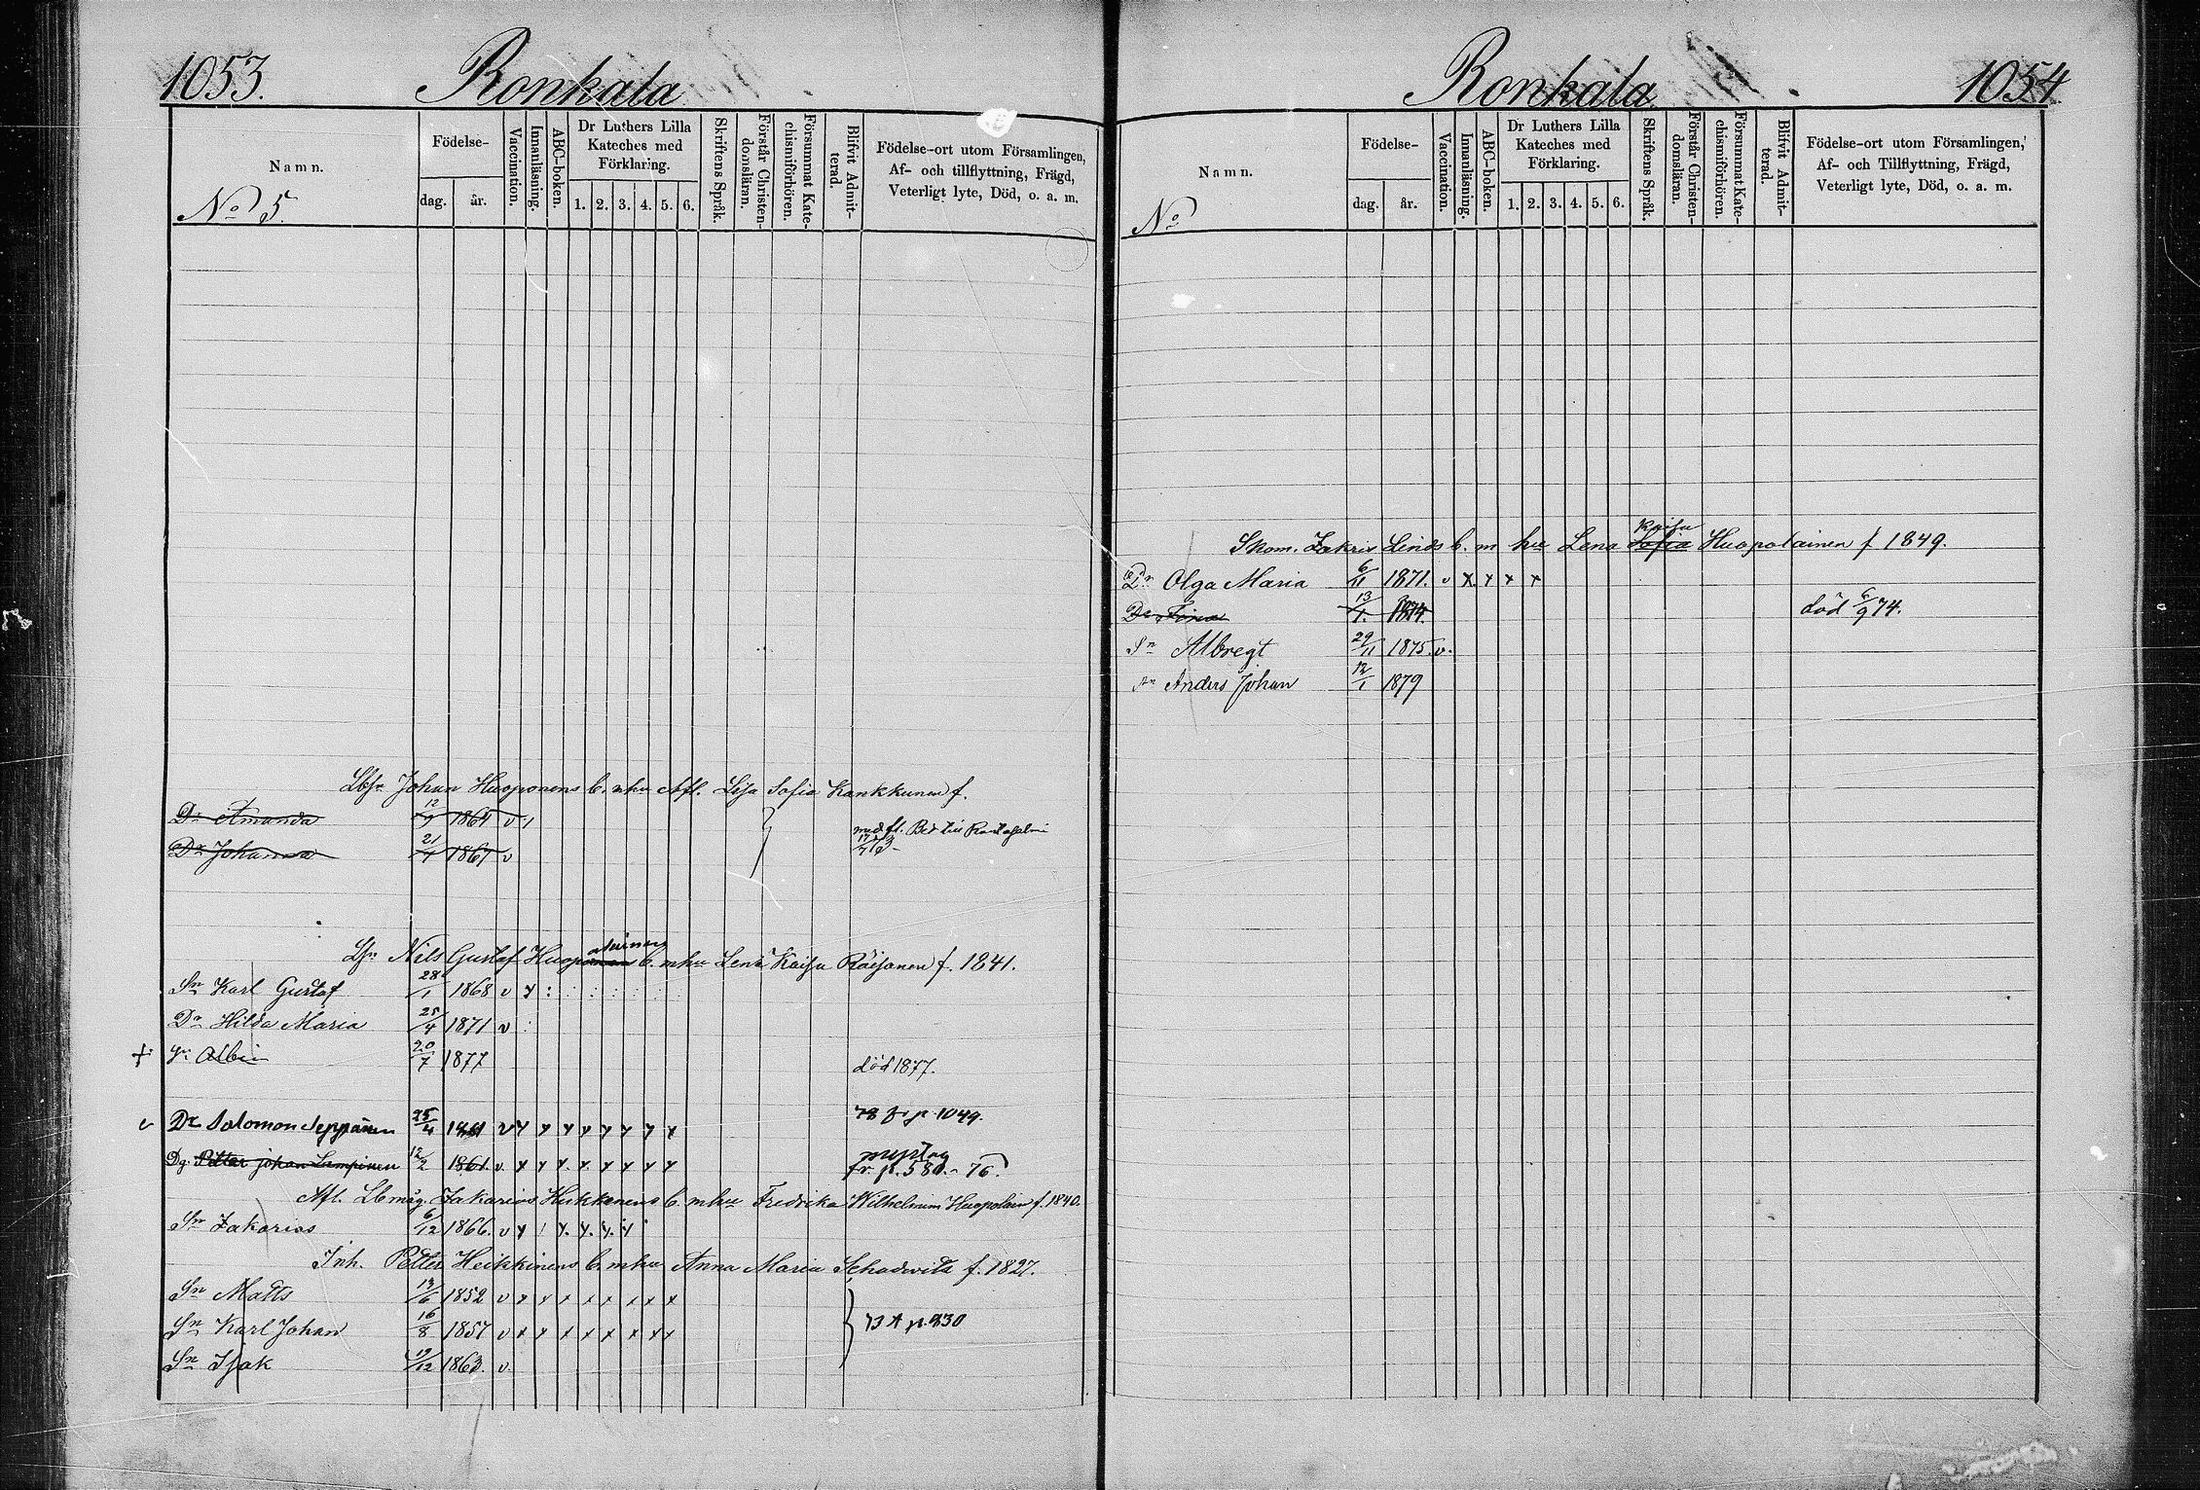 1053. Ronkala
Namn.
No 5.
Födelse-
dag. år.
Vaccination.
Innanläsning.
ABC-boken.
Dr Luthers Lilla
Kateches med
Förklaring.
1. 2. 3. 4. 5. 6.
Skriftens Språk.
Förstår Christen-
domsläran.
Försummat Kate-
chismiförhören.
Blifvit Admit-
terad.
Födelse-ort utom Församlingen,
Af- och tillflyttning, Frägd,
Veterligt lyte, Död, o. a. m.
Johan Huoponens b. m hu Afl. Lisa Sofia Kankkunen f.
Dr Amanda 12/9 1864 v
Dr Johanna 21/4 1867 v
med fl. Bet till
Nils Gustaf b. m hu Lena Kaisa Räisänen f. 1841.
Sn Karl Gustaf 28/1 1868 v x
Dr Hilda Maria 25/4 1871 v
+ Sn Albin 20/7 1877 död 1877.
v Dr Salomon Seppänen 25/4 v x x x x x x x x 78 fr p. 1049.
Dg Petter Johan Lampinen 12/2 1861. v. x x x x x x x x fr. p. 580. 76.
Afl. Zakarias b. m hu Fredrika f. 1840.
Sn Zakarias 6/12 1866. v x x. x. x. x
Inh. Petter Heikkinens b. m hu Anna Maria f. 1827.
Sn Matts 1852 v x x x x x x x x
Sn Karl Johan 16/8 1857 v x x x x x x x x
Sn Isak 19/12 1863. v.
} 73 p. 830
Ronkala 1054
Namn.
No
Födelse-
dag. år.
Vaccination.
Innanläsning.
ABC-boken.
Dr Luthers Lilla
Kateches med
Förklaring.
1. 2. 3. 4. 5. 6.
Skriftens Språk.
Förstår Christen-
domsläran.
Försummat Kate-
chismiförhören.
Blifvit Admit-
terad.
Födelse-ort utom Församlingen,
Af- och Tillflyttning, Frägd,
Veterligt lyte, Död, o. a. m.
Kaisa
Skom. Zakris Linds b. m hu Lena Sofia Huopolainen f 1849.
Dr Olga Maria 6/11 1871. v x x x x
Dr 13/1. 1874. död 74.
Sn Albregt 29/11 1875. v.
Sn Anders Johan 12/1 1879